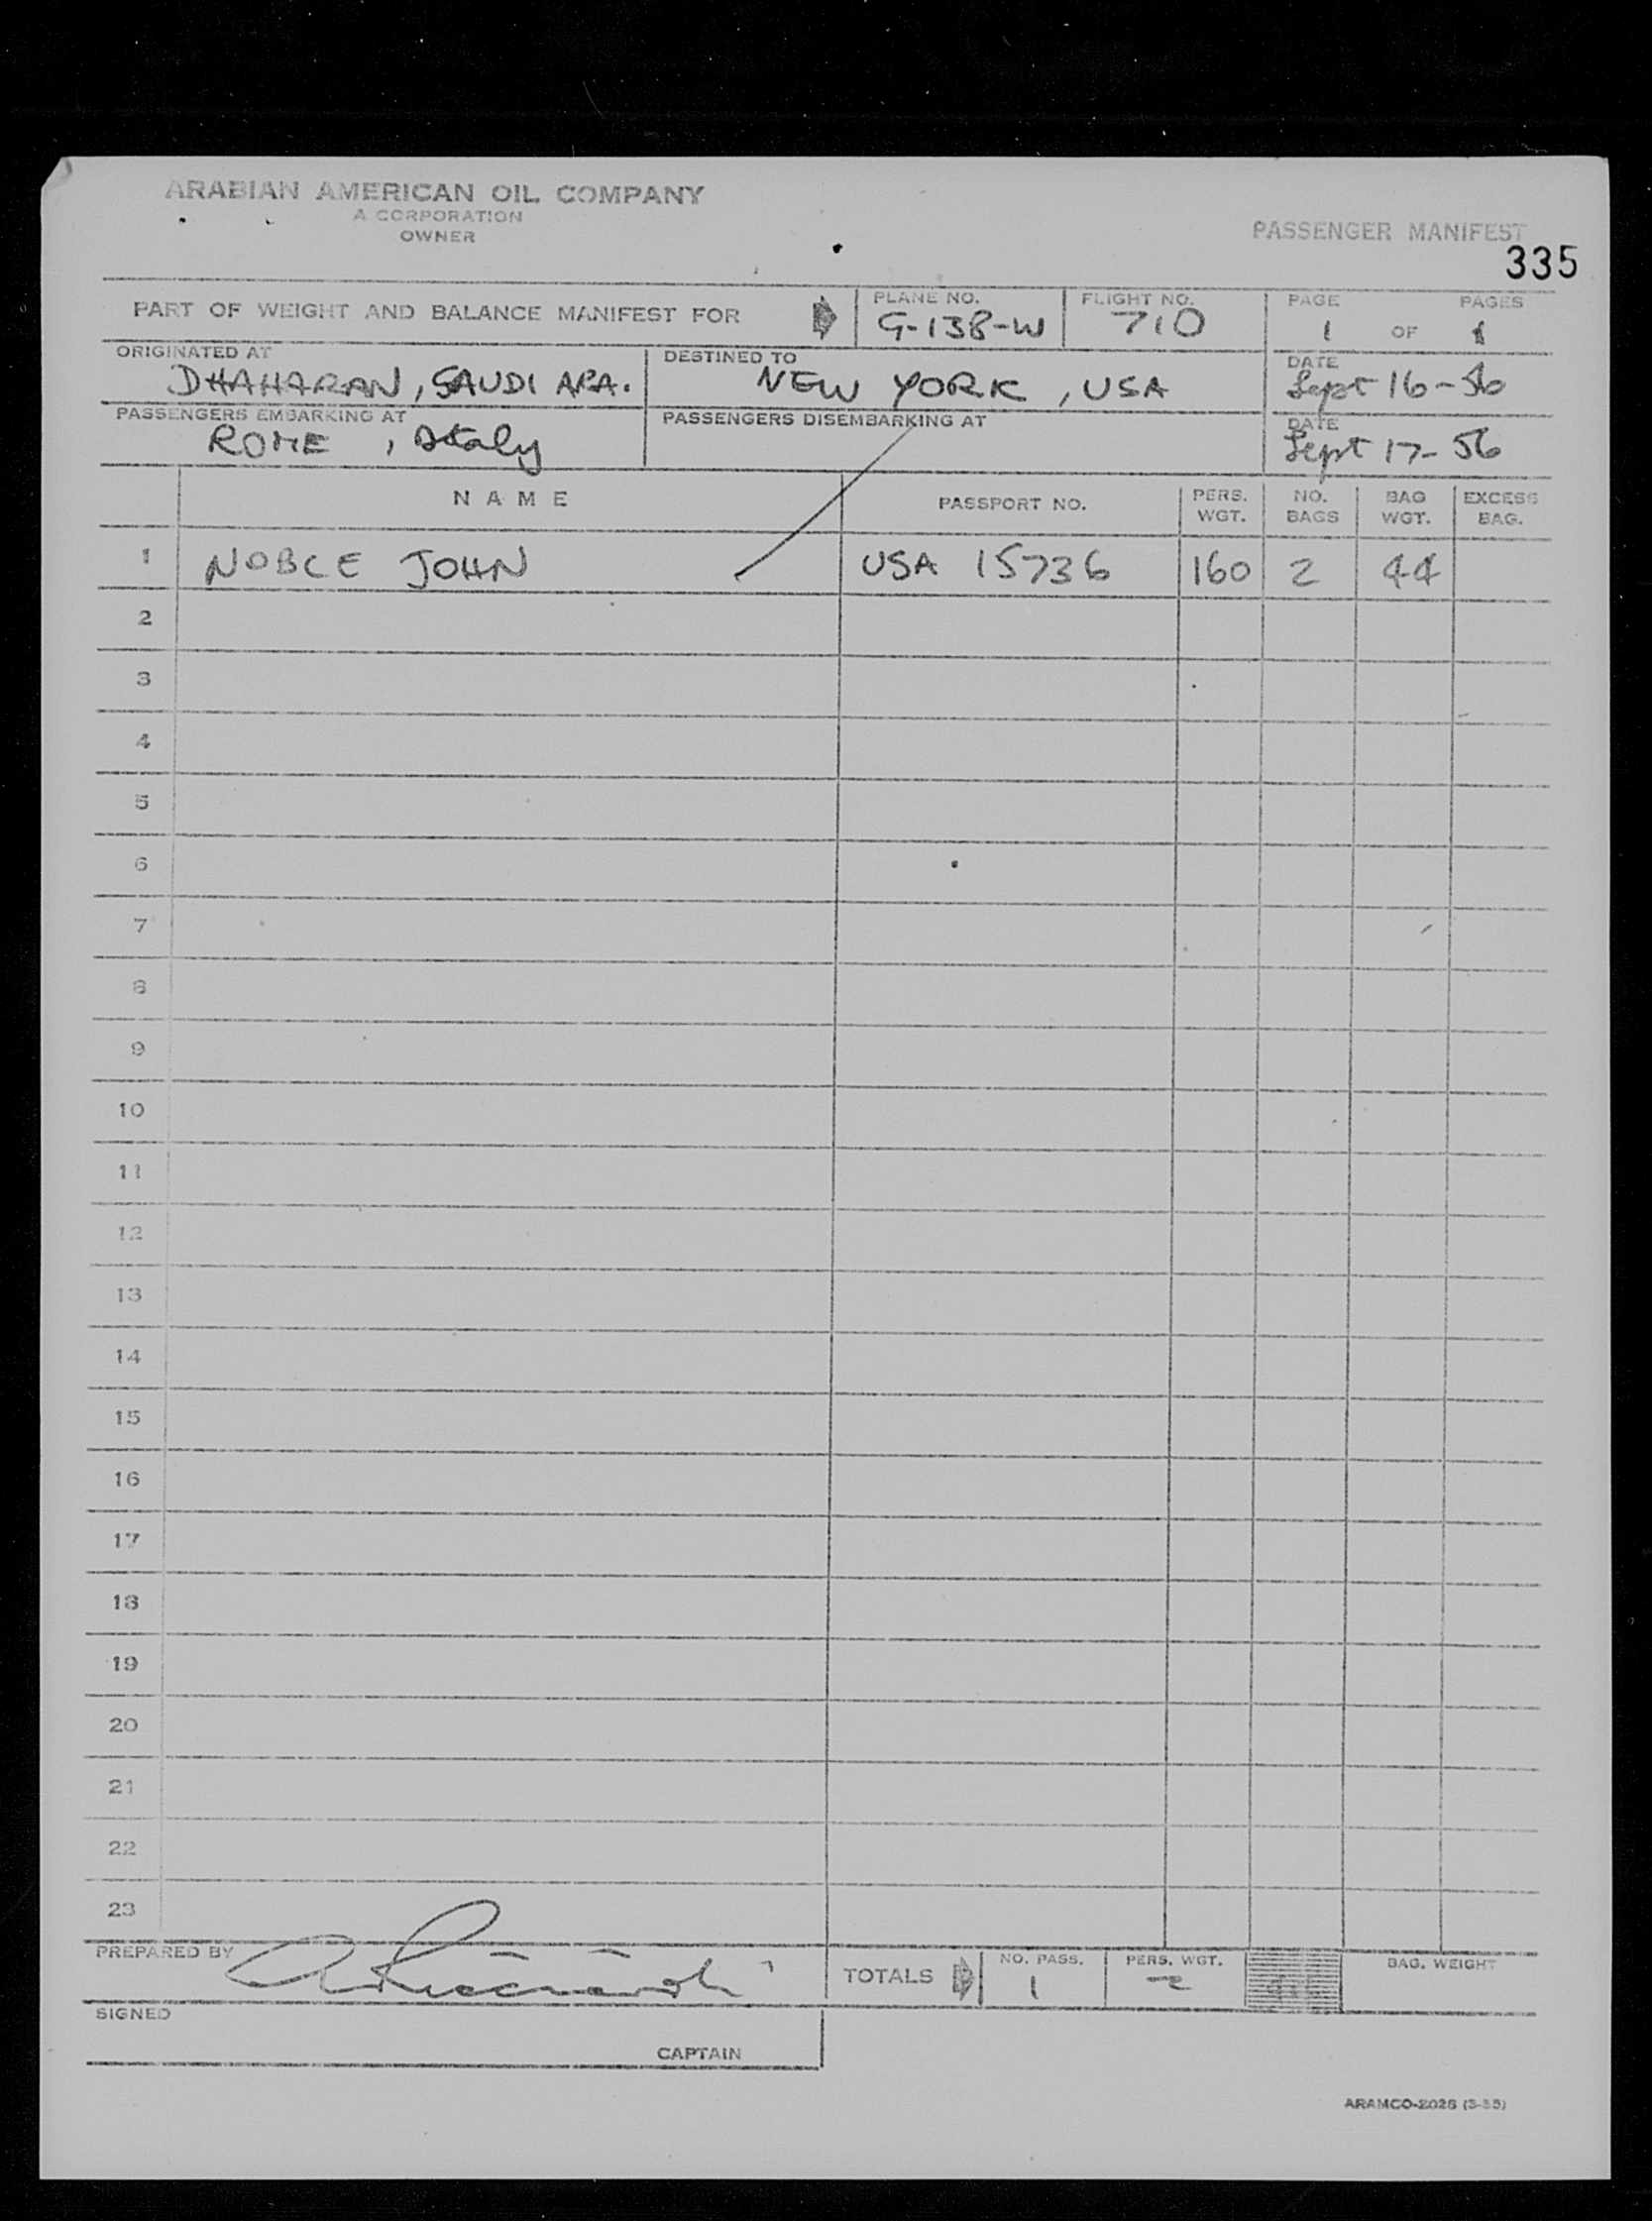 ARABIAN AMERICAN OIL COMPANY
A CORPORATION
OWNER
PASSENGER MANIFEST
335
PART OF WEIGHT AND BALANCE MANIFEST FOR
PLANE NO.
G-138-W
FLIGHT NO.
710
PAGE PAGES
1 OF 1
ORIGINATED AT
DHAHARAN, SAUDI ARA.
DESTINED TO
NEW YORK, USA
DATE
Sept 16-56
PASSENGERS EMBARKING AT
ROME, Italy
PASSENGERS DISEMBARKING AT
DATE
Sept 17-56
NAME PASSPORT NO. PERS. WGT. NO. BAGS BAG WGT. EXCESS BAG.
1 NOBLE JOHN USA 15736 160 2 44
2
3
4
5
6
7
8
9
10
11
12
13
14
15
16
17
18
19
20
21
22
23
PREPARED BY
TOTALS NO. PASS. PERS. WGT. BAG. WEIGHT
1 2
SIGNED
CAPTAIN
ARAMCO-2026 (3-55)